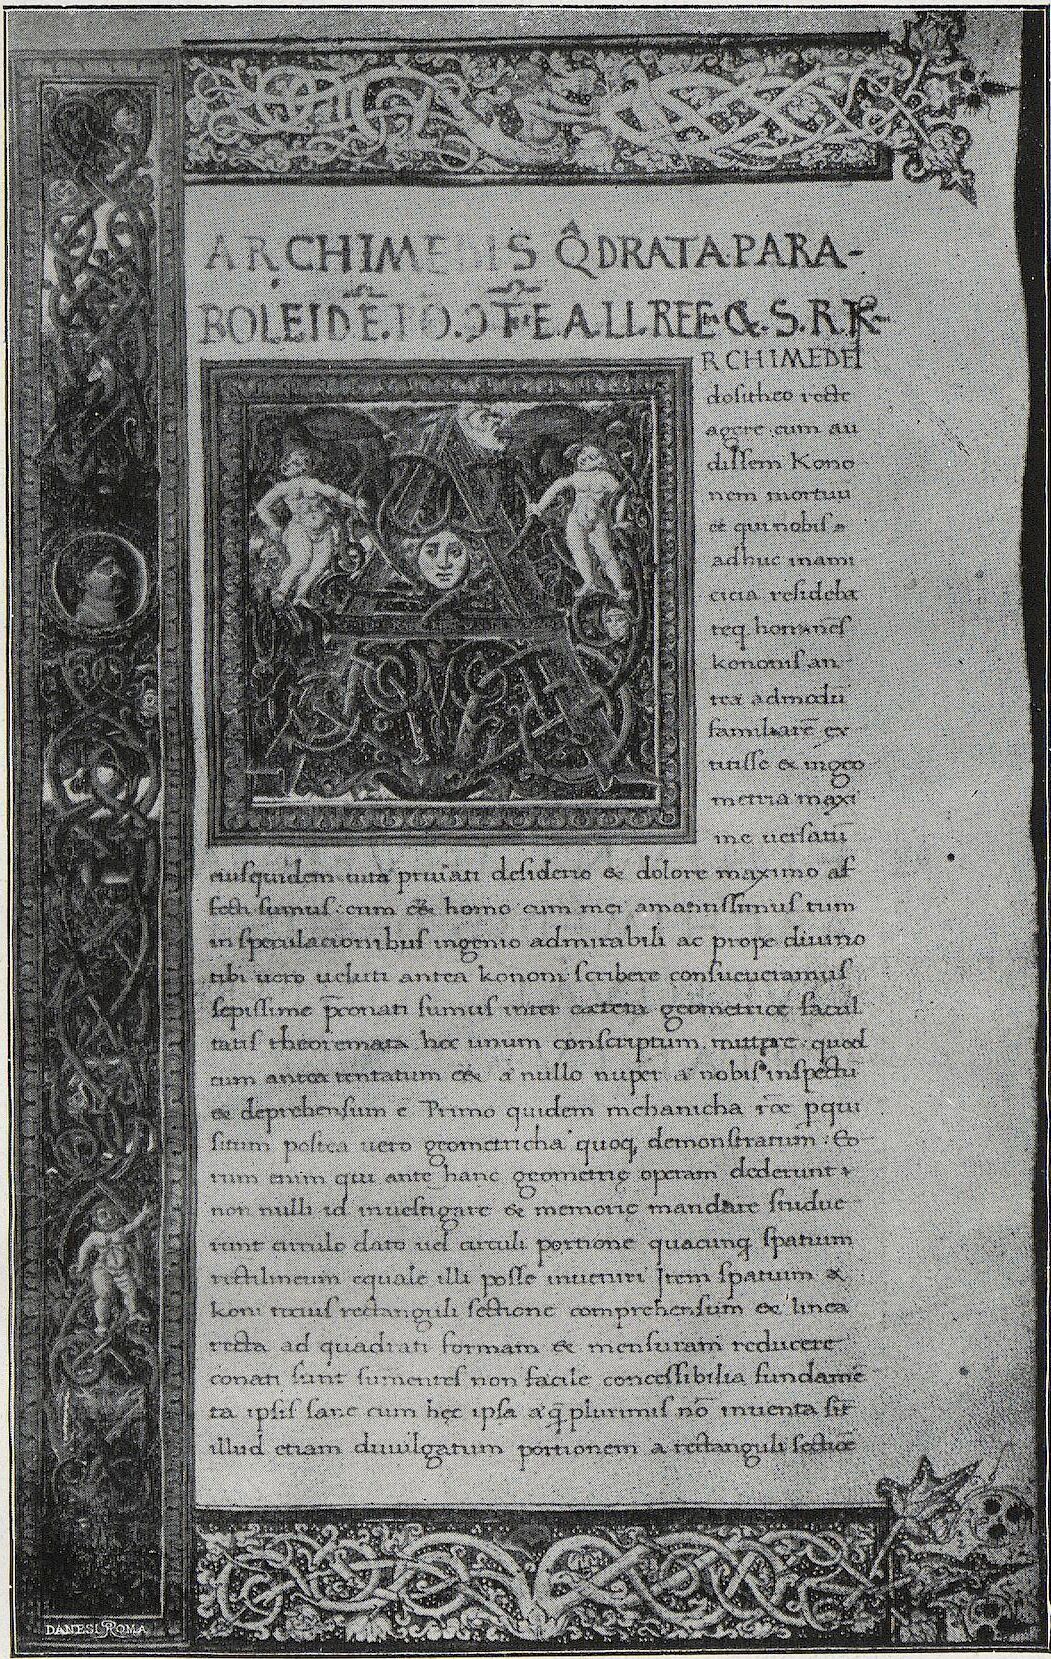 ARCHIMEDIS Q̂DRATA PARA-
RCHIMEDEſ
doſitheo recte
agere cum au
diſſem Kono
nem mortuu
eē qui nobiſ
adhuc inami
cicia reſideba
teq. 
kononiſ an
tea admodū
familiarē ex
titiſſe & ingeo
metria maxi
me uerſatū
eiuſquidem uita priuati deſiderio & dolore maximo af
fecti ſumuſ: erim homo cum mei amantiſſimuſ tum
in ſpeculacionibuſ ingenio admirabili ac prope diuino
tibi uero ueluti antea kononi ſcribere conſueueramuſ
ſepiſſime conati ſumuſ inter cætera geometrice facul
tatiſ theoremata hec unum conſcriptum quod
cum antea tentatum a nullo nuper a nobiſ inſpectū
& deprehenſum ē Primo quidem mehanicha pqui
ſitum poſtea uero geometricha quoq, demonſtratum: Eo
rum enim qui ante hanc geometrię operam dederunt
non nulli id inueſtigare & memorię mandare ſtudue
runt circulo dato uel circuli portione quacunq ſpatium
rectilineum equale illi poſſe inueniri Item ſpatium a
koni tociuſ rectanguli ſectione comprehenſum & linea
recta ad quadrati formam & menſuram reducere
conati ſunt ſumenteſ non facile conceſſibilia fundamē
ta ipſiſ ſane cum hęc ipſa a q̄ plurimiſ nō inuenta ſit
illud etiam diuulgatum portionem a rectanguli ſectiōe
DANESI ROMA